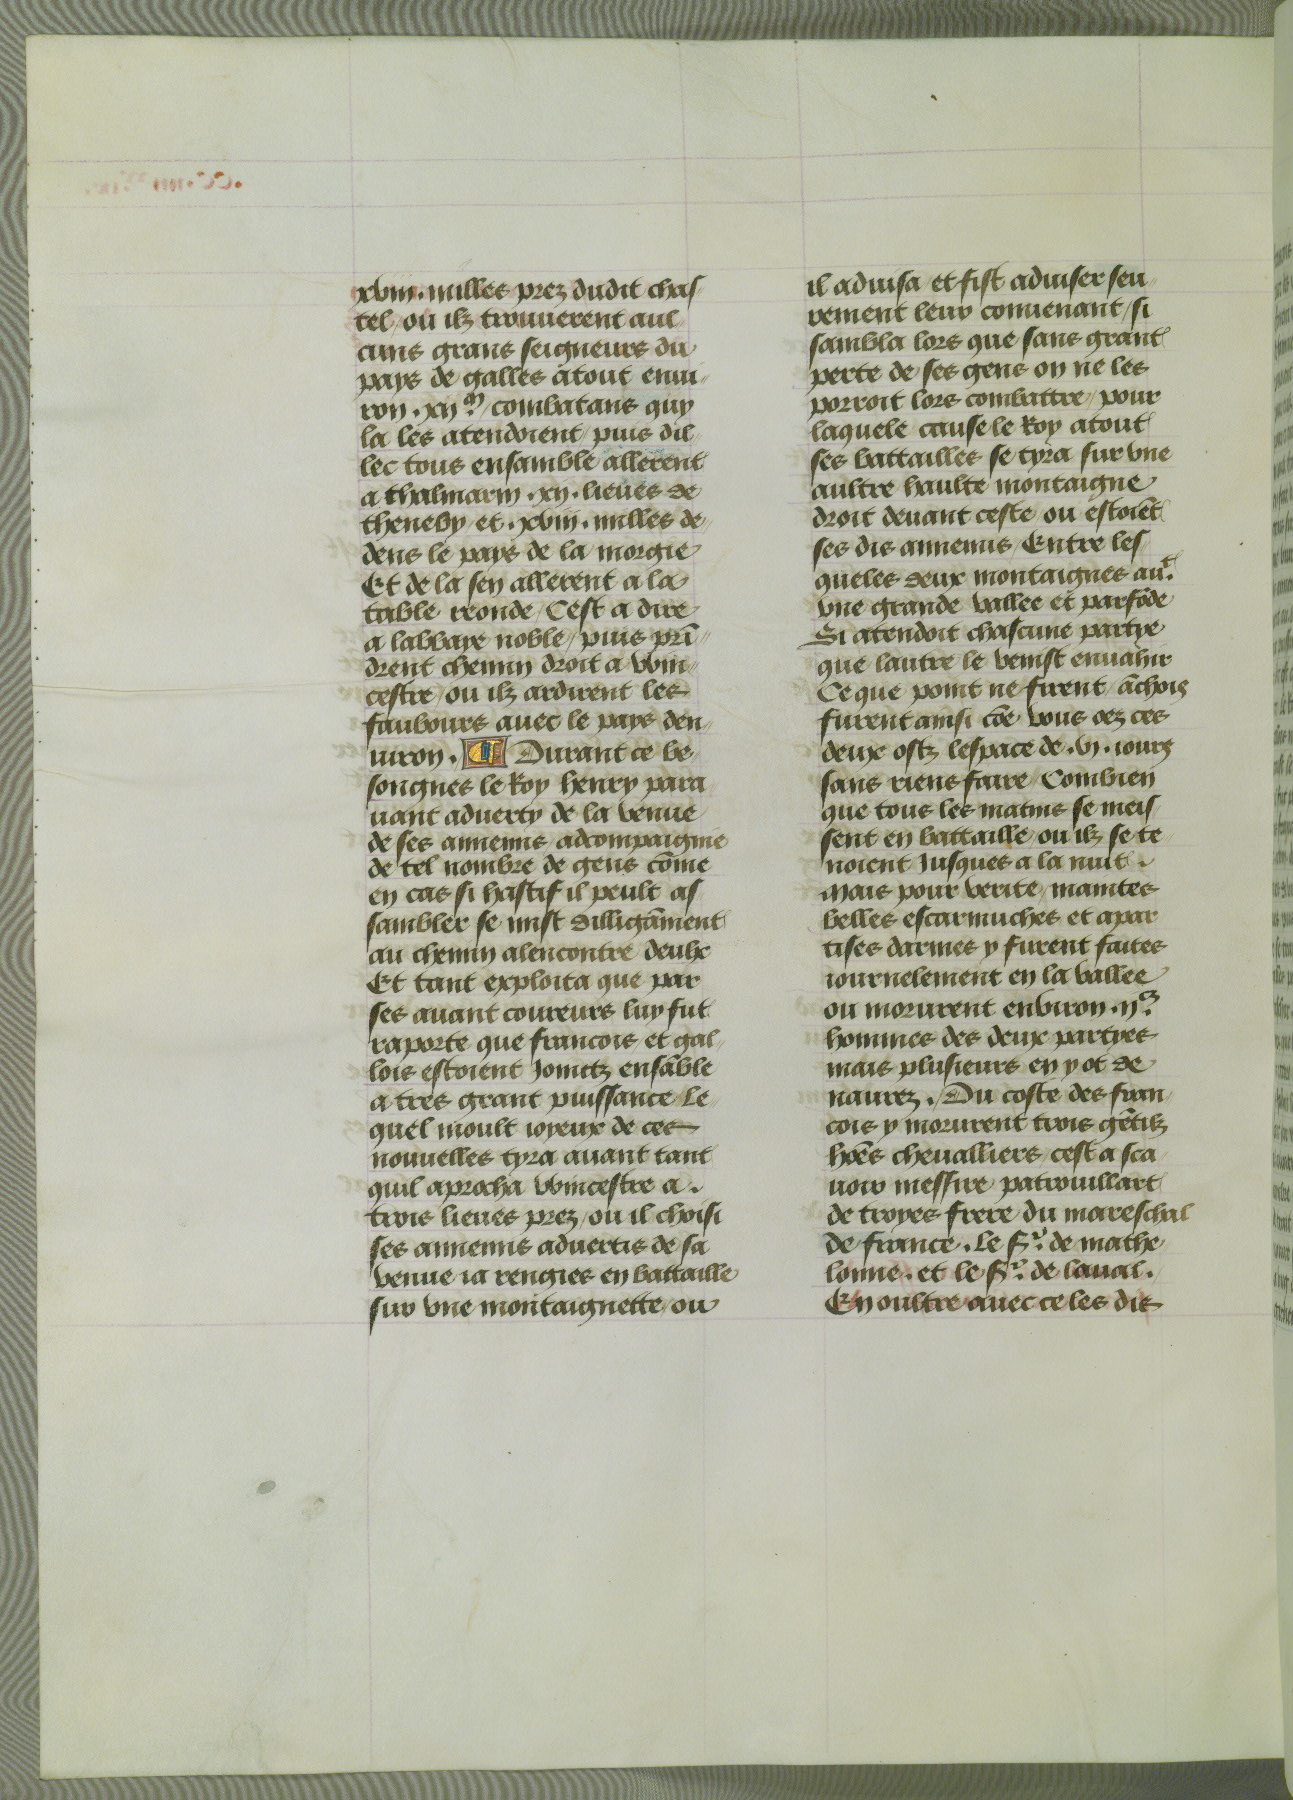 xviii. milles prez dudit chas
tel / ou ilz trouuerent aul
cuns grans seigneurs du
pays de galles atout enui
ron .xii.m combatans quy
la les atendoient / puis dil
lec tous ensamble allerent
a thalmarin .xii. lieues de
theneby / et .xviii. milles de
dens le pays de la morgie
Et de la sen allerent a la
table reonde / Cest a dire
a labbaye noble / puis prī
drent chemin droit a vvin
cestre / ou ilz ardirent les
faubours auec le pays den
uiron . Durant ce be
songnes le Roy henry para
uant aduerty de la venue
de ses annemis / adcompaignie
de tel nombre de gens cōme
en cas si hastif il peult as
sambler se mist dilligāment
au chemin alencontre deulx
Et tant exploita que par
ses auant coureurs luy fut
raporte que francois et gal
lois estoient Jointz ensāble
a tres grant puissance / Le
quel moult ioyeux de ces
nouuelles tyra auant tant
quil aprocha vvincestre a .
trois lieues prez / ou il choisi
ses annemis aduertis de sa
venue ia rengies en battaille
sur vne montaignette / ou
il aduisa et fist aduiser seu
rement leur conuenant / si
sambla lors que sans grant
perte de ses gens on ne les
porroit lors combattre / pour
laquele cause le Roy atout
ses battailles se tyra sur vne
aultre haulte montaigne
droit deuant ceste ou estoiēt
ses dis annemis / Entre les
queles deux montaignes aut.
vne grande vallee et parfōde
Si atendoit chascune partye
que lautre le venist enuahir
Ce que point ne firent / āchois
furent ainsi cōe vous oez ces
deux ostz lespace de .vi. iours
sans riens faire / Combien
que tous les matins se meis
sent en battaille / ou ilz se te
noient Jusques a la nuit .
Mais pour verite / maintes
belles escarmuches et apar
tises darmes y furent faites
iournelement en la vallee
ou morurent environ .iic.
hommes des deux partyes
mais plusieurs en y ot de
naurez . Du coste des fran
cois y morurent trois gētilz
hōēs cheualliers / cest a sca
uoir messire patrouillart
de troyes frere du mareschal
de france . Le Sr. de mathe
lonne . et le Sr. de laual .
En oultre auec ce les dis